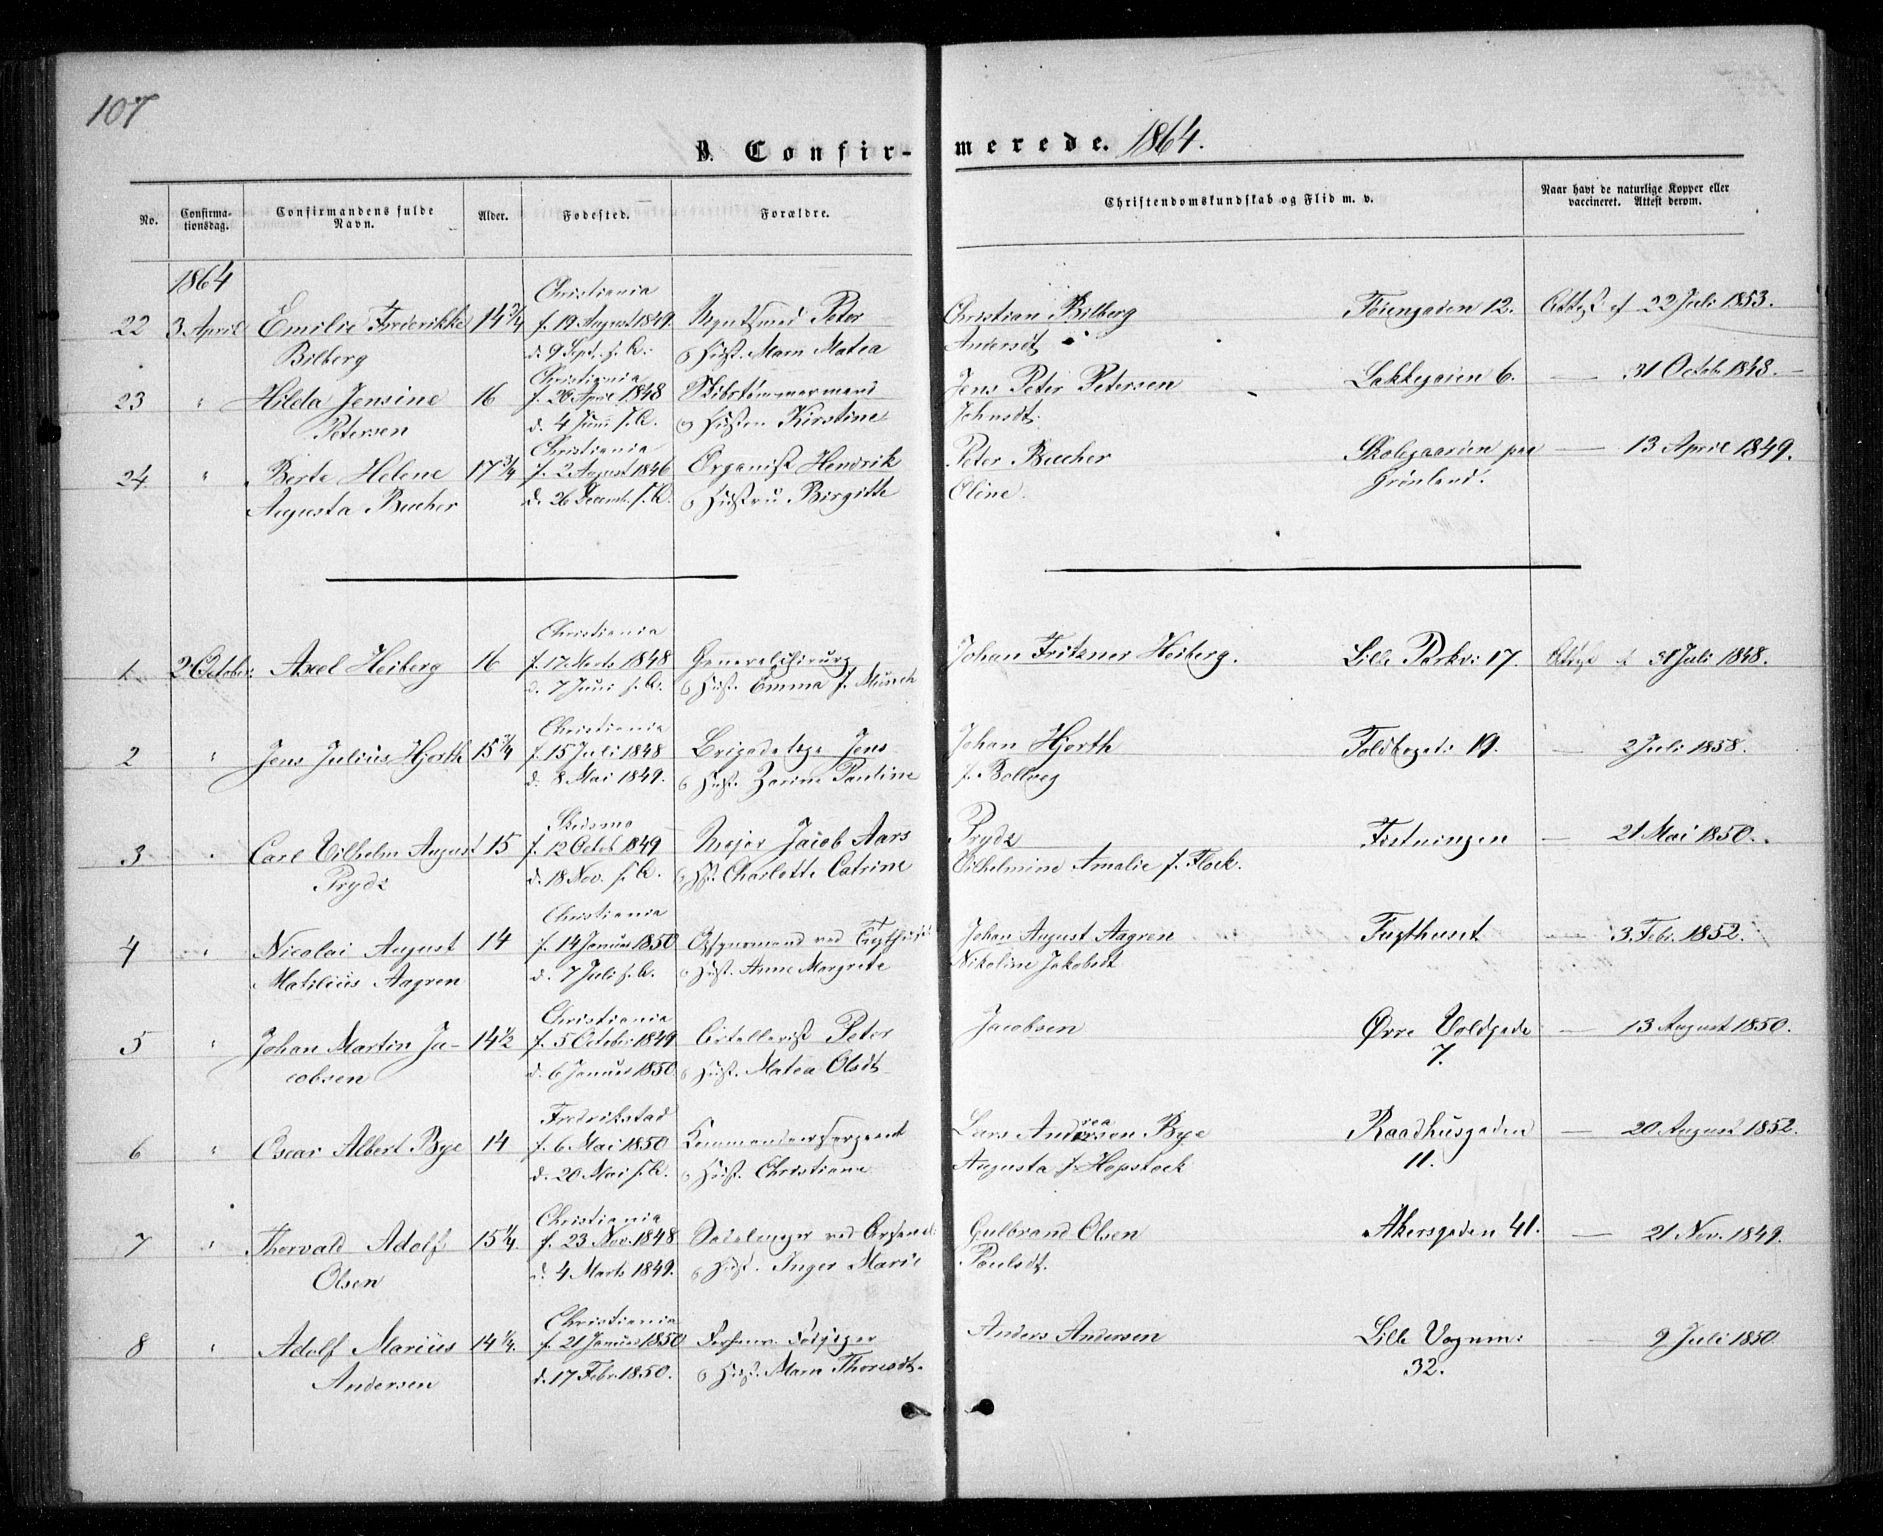 107
B. Confirmerede. 1864.
No.
Confirmationsdag.
Confirmandens fulde Navn.
Alder.
Fødested.
Forældre.
Christendomskundskab og Flid m. v.
Naar havt de naturlige Kopper eller vaccineret. Attest derom.
1864 Christiania
22 3. April Emilie Frederikke 14 3/4 f. 19 August 1849. Peter Christian Bilberg Føiengaden 12. Attest af 22 Juli 1853.
Bilberg d. 9 Sept. s. A. Hust. Maren Matea Andersdt.
Christiania
23 " Hilda Jensine 16 f. 20 April 1848 Skibstømmermand Jens Peter Petersen Lakkegaten 6. — 31 Octob. 1848.
Petersen d. 4 Juni s. A. Hustru Kirstine Johnsdt.
Christiania
24. " Berte Helene 17 3/4 f. 2 August 1846 Organist Hendrik Peter Bucher Skolegaarden paa — 13 April 1849.
Augusta Bucher d. 26 Decemb. s. A. Hustru Birgitte Oline. Grønland.
Christiania
1. 2 October: Axel Heiberg 16 f. 17 Marts 1848 Generalchirurg Johan Fritzner Heiberg. Lille Parkv: 17. Attest af 31 Juli 1848.
d. 7 Juni s. A. Hust. Emma f. Munch
Christiania
2 " Jens Julius Hjorth 15 3/4 f. 15 Juli 1848 Brigadelæge Jens Johan Hjorth Toldbogd: 19. — 2 Juli 1858.
d. 8 Mai 1849. Hust. Pauline f. Bollveg
Skedsmo
3 " Carl Vilhelm August 15 f. 12 Octob. 1849 Major Jacob Aars Prydz Fæstningen — 21 Mai 1850.
Prydz d. 18 Nov. s. A. Charlotte Catrine Vilhelmine Amalie f. Flock.
Christiania
4 " Nicolai August 14 f. 14 Januar 1850 Opsynsmand ved Tugthuset Johan August Aagren Tugthuset — 3. Feb. 1852.
Matilius Aagren d. 7 Juli s. A. Hust. Anne Margrete Nikoline Jakobsdt
Christiania
5 " Johan Martin Ja- 14 1/2 f. 5 October 1849. Artillerist Peter Jacobsen Øvre Voldgade — 13 August 1850.
cobsen d. 6 Januar 1850. Hust. Matea Olsdt. 7.
Fredrikstad
6 " Oscar Albert Bye 14 f. 6 Mai 1850 Kommandeersergeant Lars Andersen Bye Raadhusgaden — 20 August 1852.
d. 20 Mai s. A. Hust. Christiane Augusta f. Hopstock 11.
Christiania
7 " Thorvald Adolf 15 1/4. f. 23 Nov. 1848 Sadelmager ved Gulbrand Olsen Akersgaden 41. — 21 Nov. 1849.
Olsen d. 4 Marts 1849. Hust. Inger Marie Poulsdt.
Christiania
8 " Adolf Marius 14 1/4. f. 21 Januar 1850 Anders Andersen Lille Vognm: — 9 Juli 1850
Andersen d. 17 Febr. 1850. Hust. Maren Thoresdt. 32.